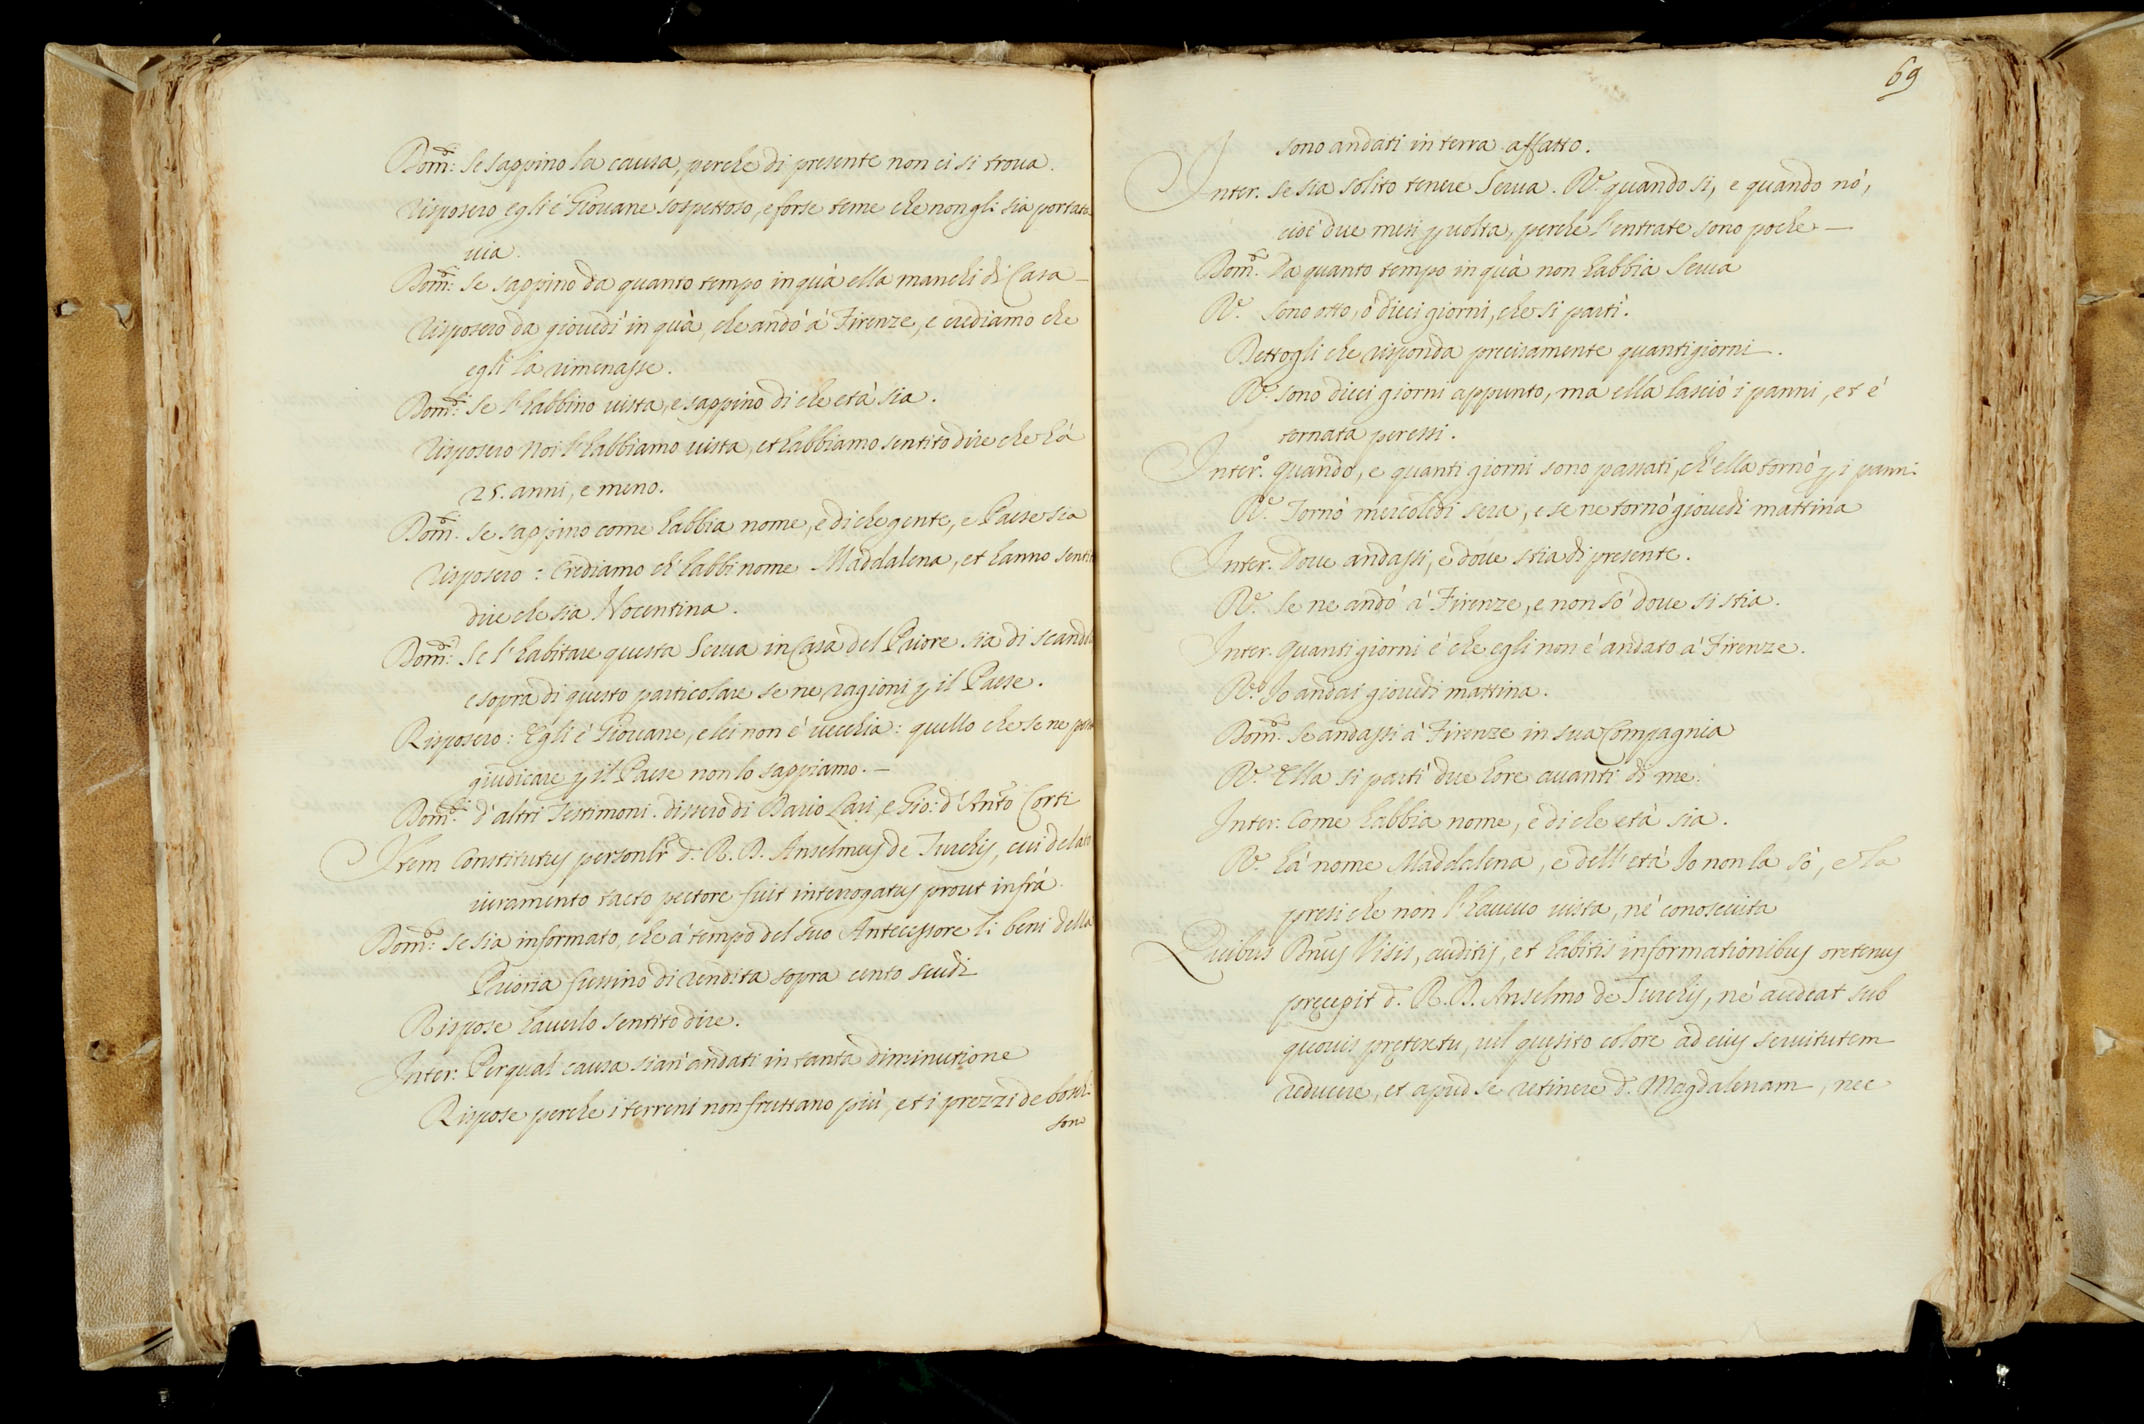 Dom.di: se sappino la causa, perche di presente non ci si troua.
Risposero egli è Giouane sospettoso, e forse teme che non gli sia portata
uia.
Dom.di: se sappino da quanto tempo in quà ella manchi di Casa
Risposero da giouedì in quà, che andò à Firenze, e crediamo che
egli la rimenasse.
Dom.di: se l'habbino uista, e sappino di che età sia.
Risposero Noi l'habbiamo uista, et habbiamo sentito dire che hà
25. anni, e meno.
Dom.di se sappino come habbia nome, e di che gente, e Paese sia
Risposero: Crediamo ch'habbi nome Maddalena, et hanno sentito
dire che sia Nocentina.
Dom.di: Se l'habitare questa Serua in Casa del Priore sia di scandolo
e sopra di questo particolare se ne ragioni p il Paese.
Risposero: Egli è Giouane, e lei non è uecchia: quello che se ne possa
giudicare p il Paese non lo sappiamo.—
Dom.di: d'altri Testimoni. dissero di Dario Lari, e Gio: d'Anto Corti
Item Constitutus personlr d. R. D. Anselmus de Turchis, cui delato
iuramento tacto pectore fuit interrogatus prout infrà
Dom.o: se sia informato, che à tempo del suo Antecessore li beni della
Prioria fussino di rendita sopra cento scudi
Rispose hauerlo sentito dire.
Inter: Per qual causa sian' andati in tanta diminutione
Rispose perche i terreni non fruttano più, et i prezzi de boschi
sono
69
sono andati in terra affatto.
Inter. se sia solito tenere Serua. R.e quando si, e quando nò,
cioè due mesi p uolta, perche l'entrate sono poche—
Dom.o: Da quanto tempo in quà non habbia Serua
R.e sono otto, ò dieci giorni, che si partì.
Dettogli che risponda precisamente quanti giorni.
R.e sono dieci giorni appunto, ma ella lasciò i panni, et è
tornata per essi.
Inter.o quando, e quanti giorni sono passati, ch'ella tornò p i panni
R.e Tornò mercoledì sera, e se ne tornò giouedì mattina
Inter. Doue andassi, e doue stia di presente.
R.e Se ne andò à Firenze, e non sò doue si stia.
Inter. quanti giorni è che egli non è andato à Firenze.
R.e Io andai giouedì mattina.
Dom.o: Se andassi à Firenze in sua Compagnia
R.e Ella si partì due hore auanti di me.
Inter: Come habbia nome, e di che età sia.
R.e hà nome Maddalena, e dell'età Io non la sò, e la
presi che non l'haueuo uista, nè conosciuta
Quibus Dnus Visis, auditis, et habitis informationibus oretenus
precepit d. R. D. Anselmo de Turchis, nè audeat sub
quouis pretextu, uel quesito colore ad eius seruitutem
reducere, et apud se retinere d. Magdalenam, nec